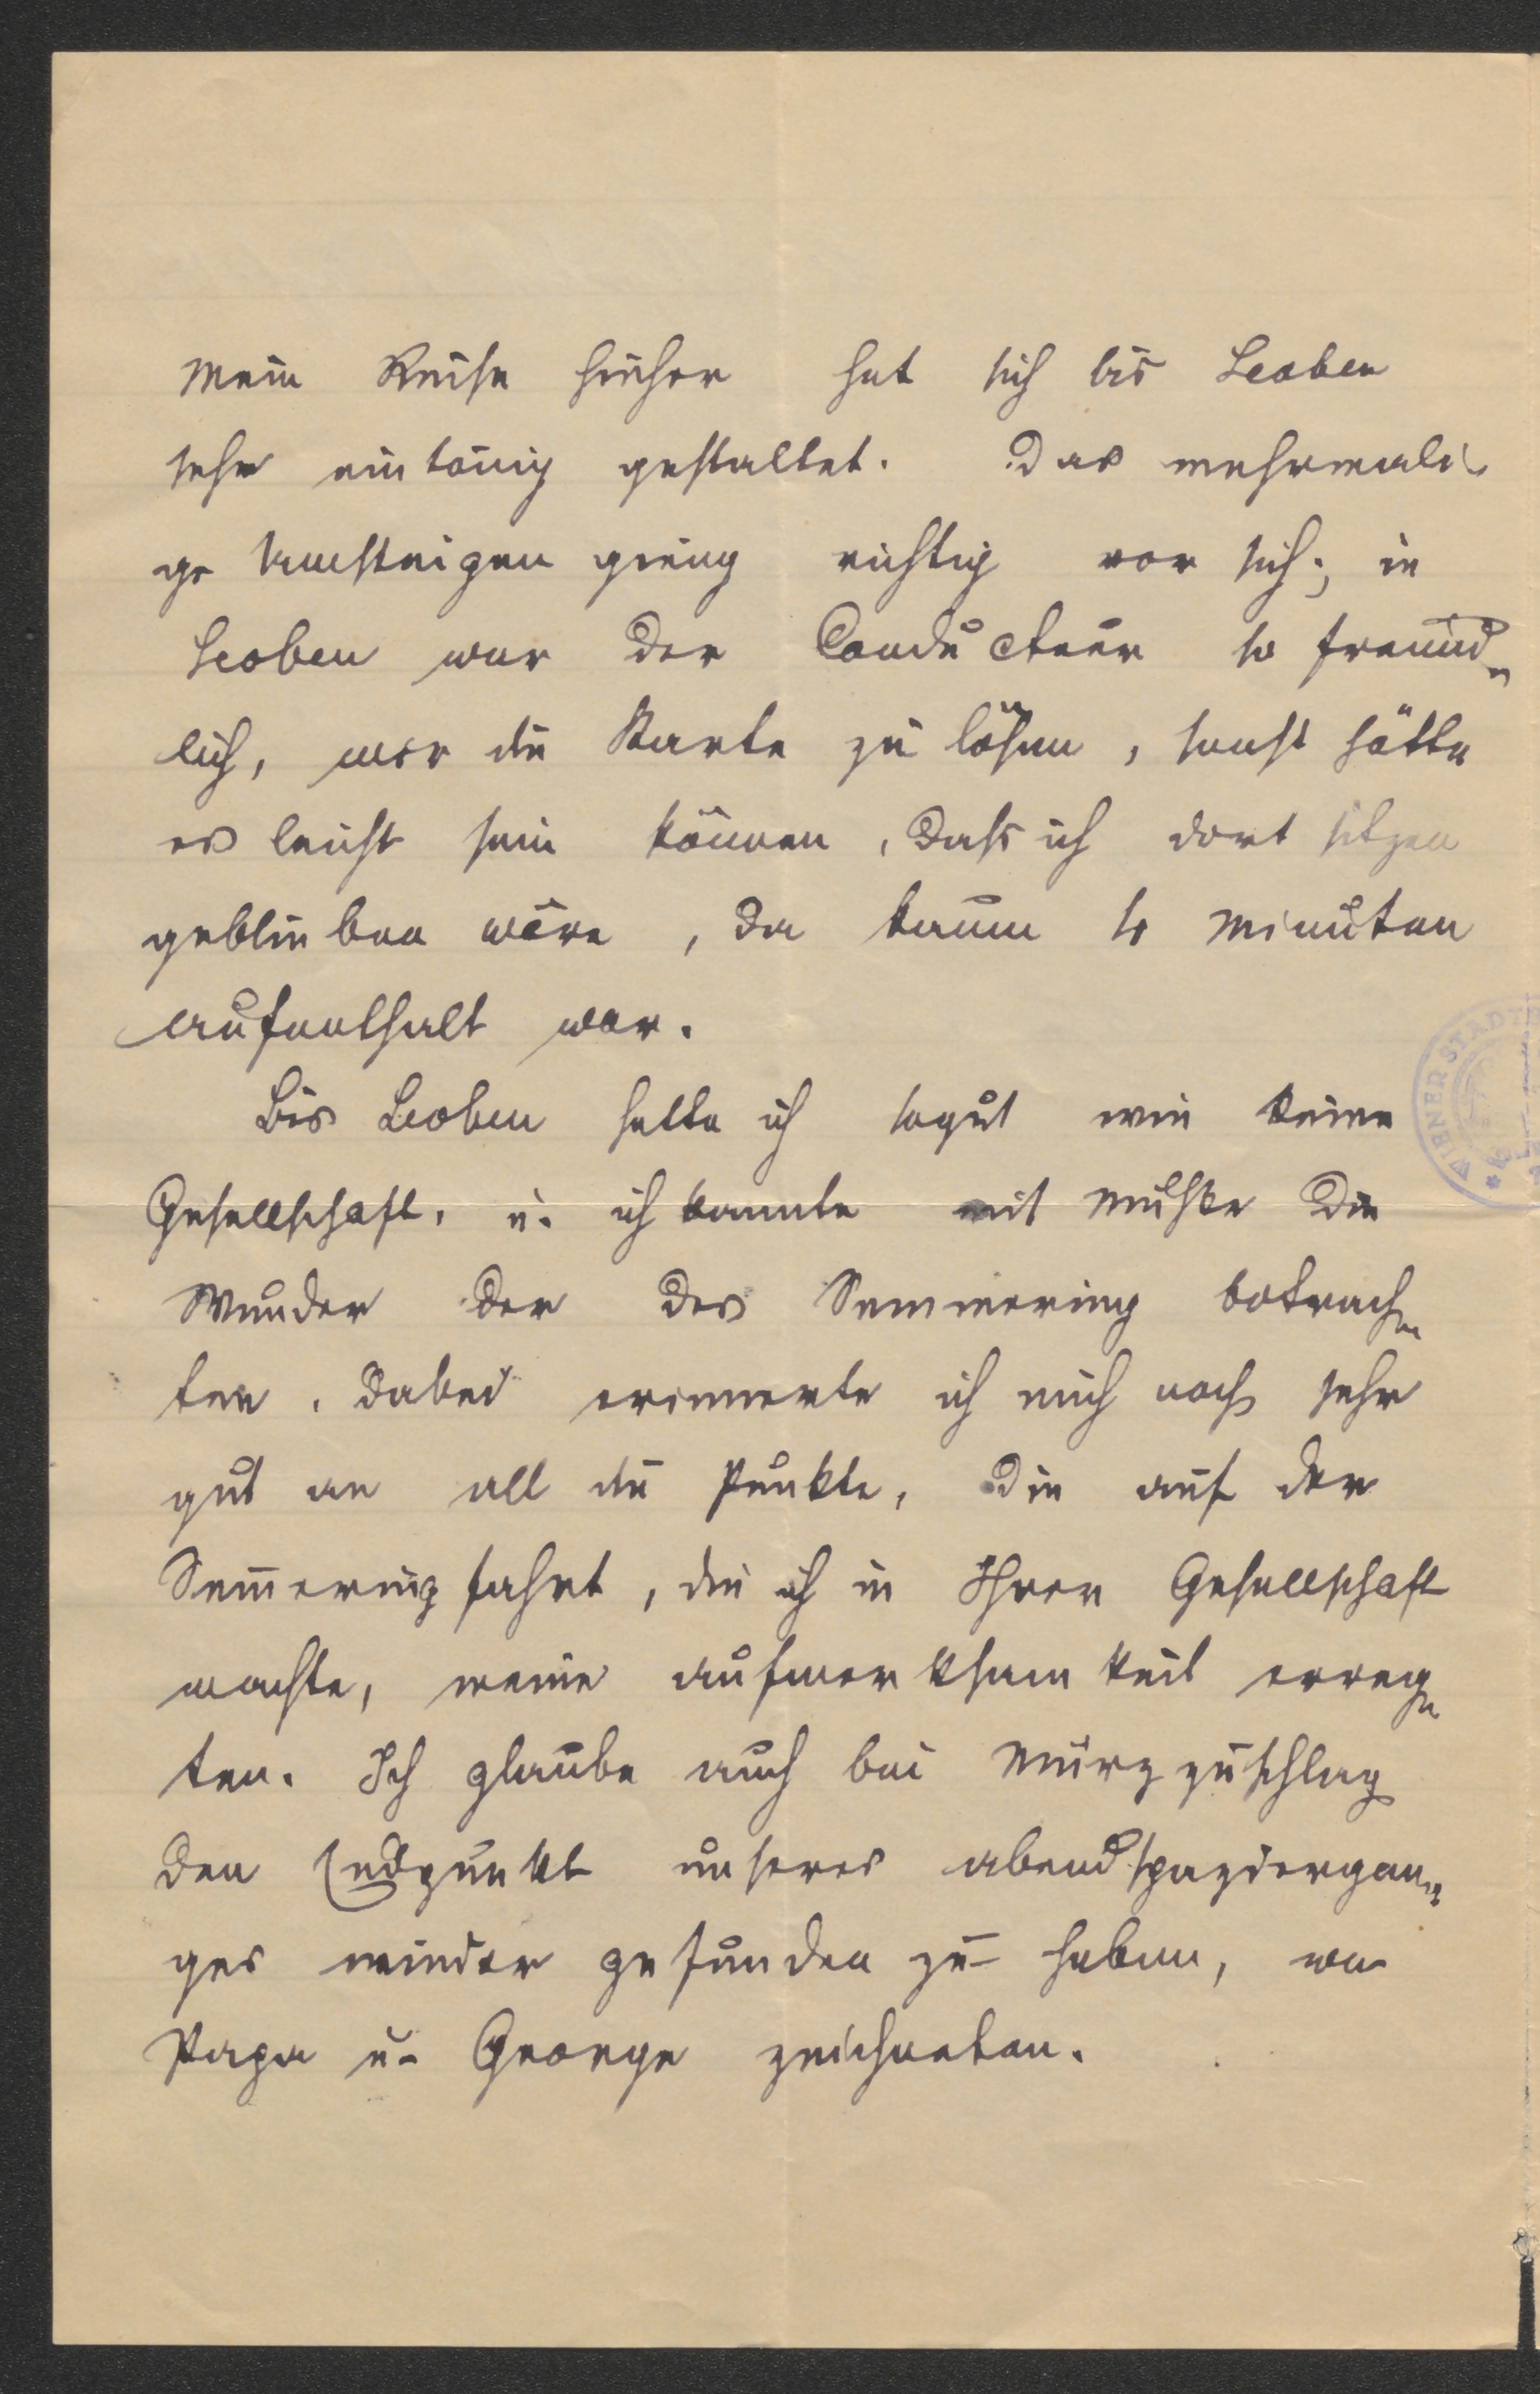 Mein Reise hieher hat sich bis Leoben
sehr eintönig gestaltet. Das mehrmali-
ge Umsteigen gieng richtig vor sich; in
Leoben war der Conducteur so freund-
lich, mir die Karte zu lösen, sonst hätte
es leicht sein können, daß ich dort sitzen
geblieben wäre, da kaum 10 Minuten
Aufenthalt war.
Bis Leoben hatte ich sogut wie keine
Gesellschaft, u. ich konnte mit Muße die
Wunder der des Semmering betrach-
ten. Dabei erinnerte ich mich noch sehr
gut an all die Punkte, die auf der
Sem̄eringfahrt, die ich in Ihrer Gesellschaft
machte, meine Aufmerksamkeit erreg-
ten. Ich glaube auch bei Mürzzuschlag
den Endpunkt unseres Abendspaziergan-
ges wieder gefunden zu haben, wo
Papa u. George zeichneten.
WIENER STADT